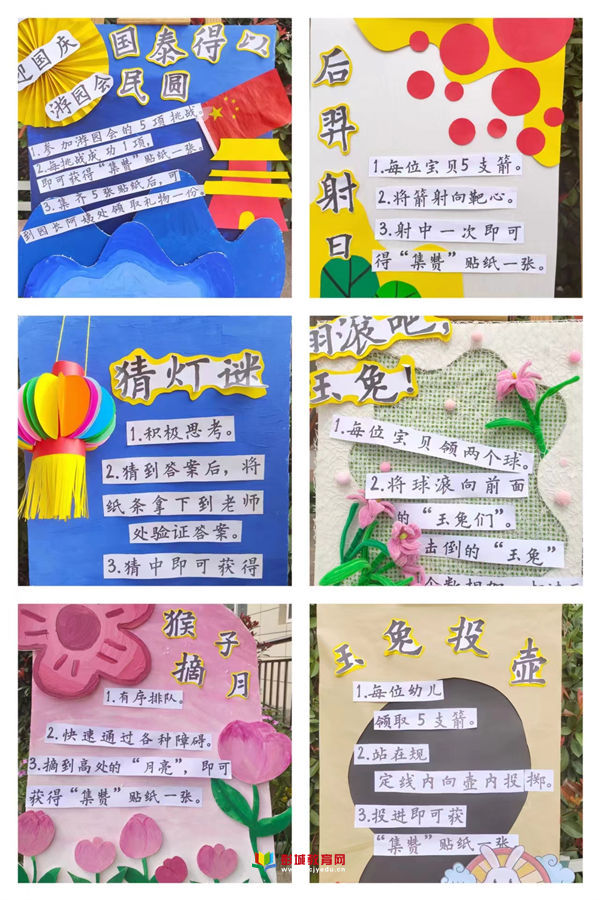 迎国庆
游园会
国泰得以
民圆
1.参加游园会的5项挑战。
2.每挑战成功1项,
即可获得“集赞”贴纸一张。
3.集齐5张贴纸后,可
到园长阿姨处领取礼物一份。
后羿射日
1.每位宝贝5支箭。
2.将箭射向靶心。
3.射中一次即可
得“集赞”贴纸一张。
猜灯谜
1.积极思考。
2.猜到答案后,将
纸条拿下到老师
处验证答案。
3.猜中即可获得
翻滚吧,
玉兔!
1.每位宝贝领两个球。
2.将球滚向前面
的“玉兔们”。
击倒的“玉兔”
猴子
摘月
1.有序排队。
2.快速通过各种障碍。
3.摘到高处的“月亮”,即可
获得“集赞”贴纸一张。
玉兔投壶
1.每位幼儿
领取5支箭。
2.站在规
定线内向壶内投掷。
3.投进即可获
“集赞”贴纸一张
彭城教育网